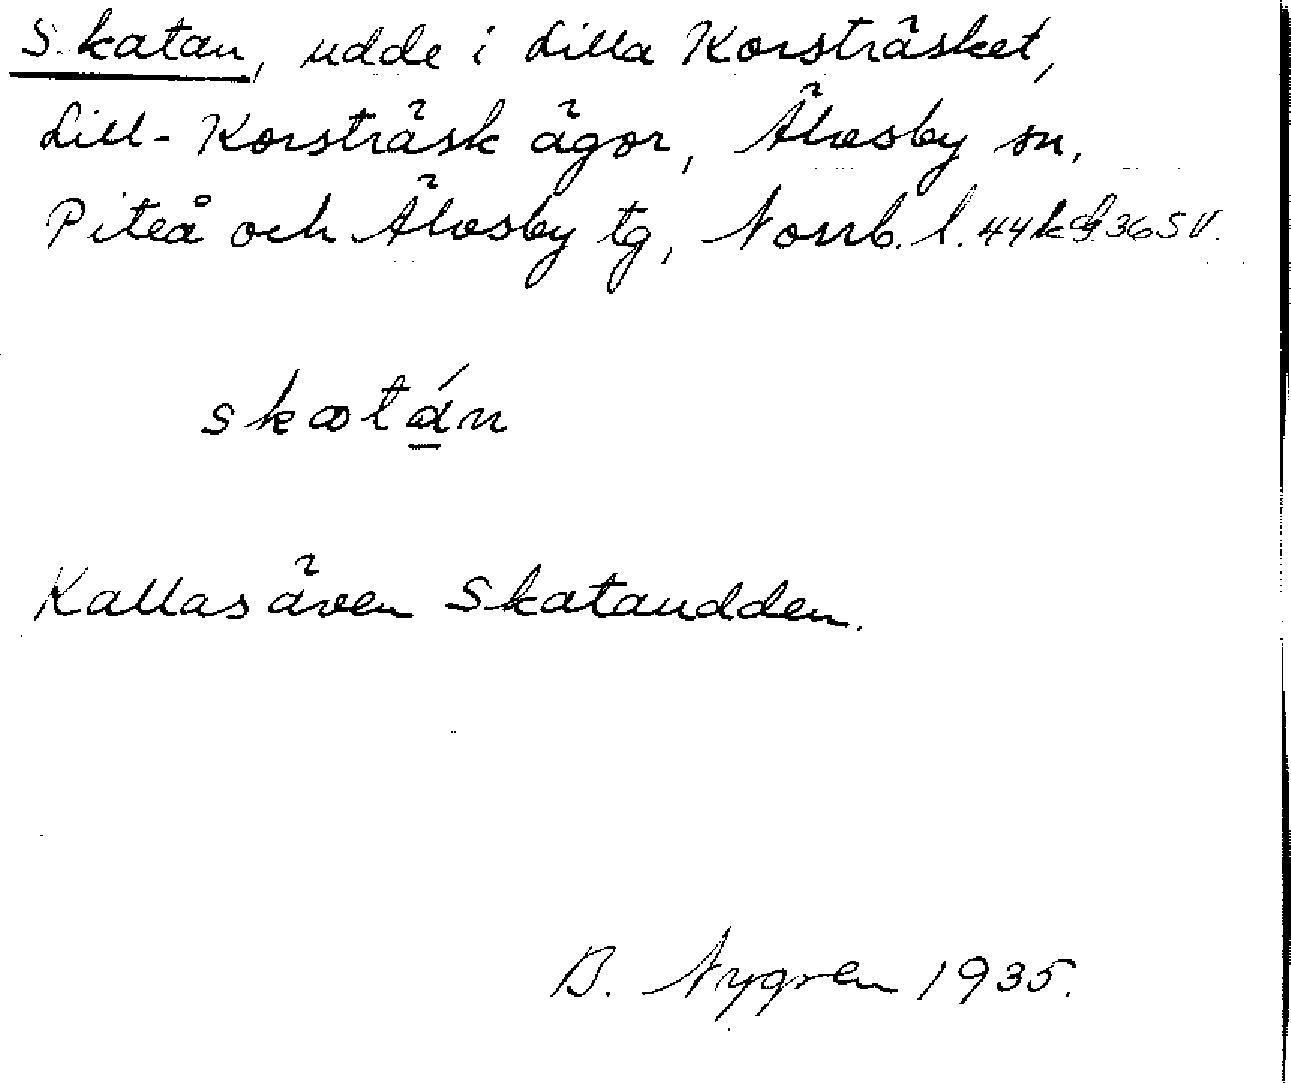 Skatan, udde i Lilla Korsträsket,
Lill-Korsträsk ägor, Älvsby sn,
Piteå och Älvsby tg, Norrb. l. 36 SV.
Kallas även Skataudden.
B. Nygren 1935.